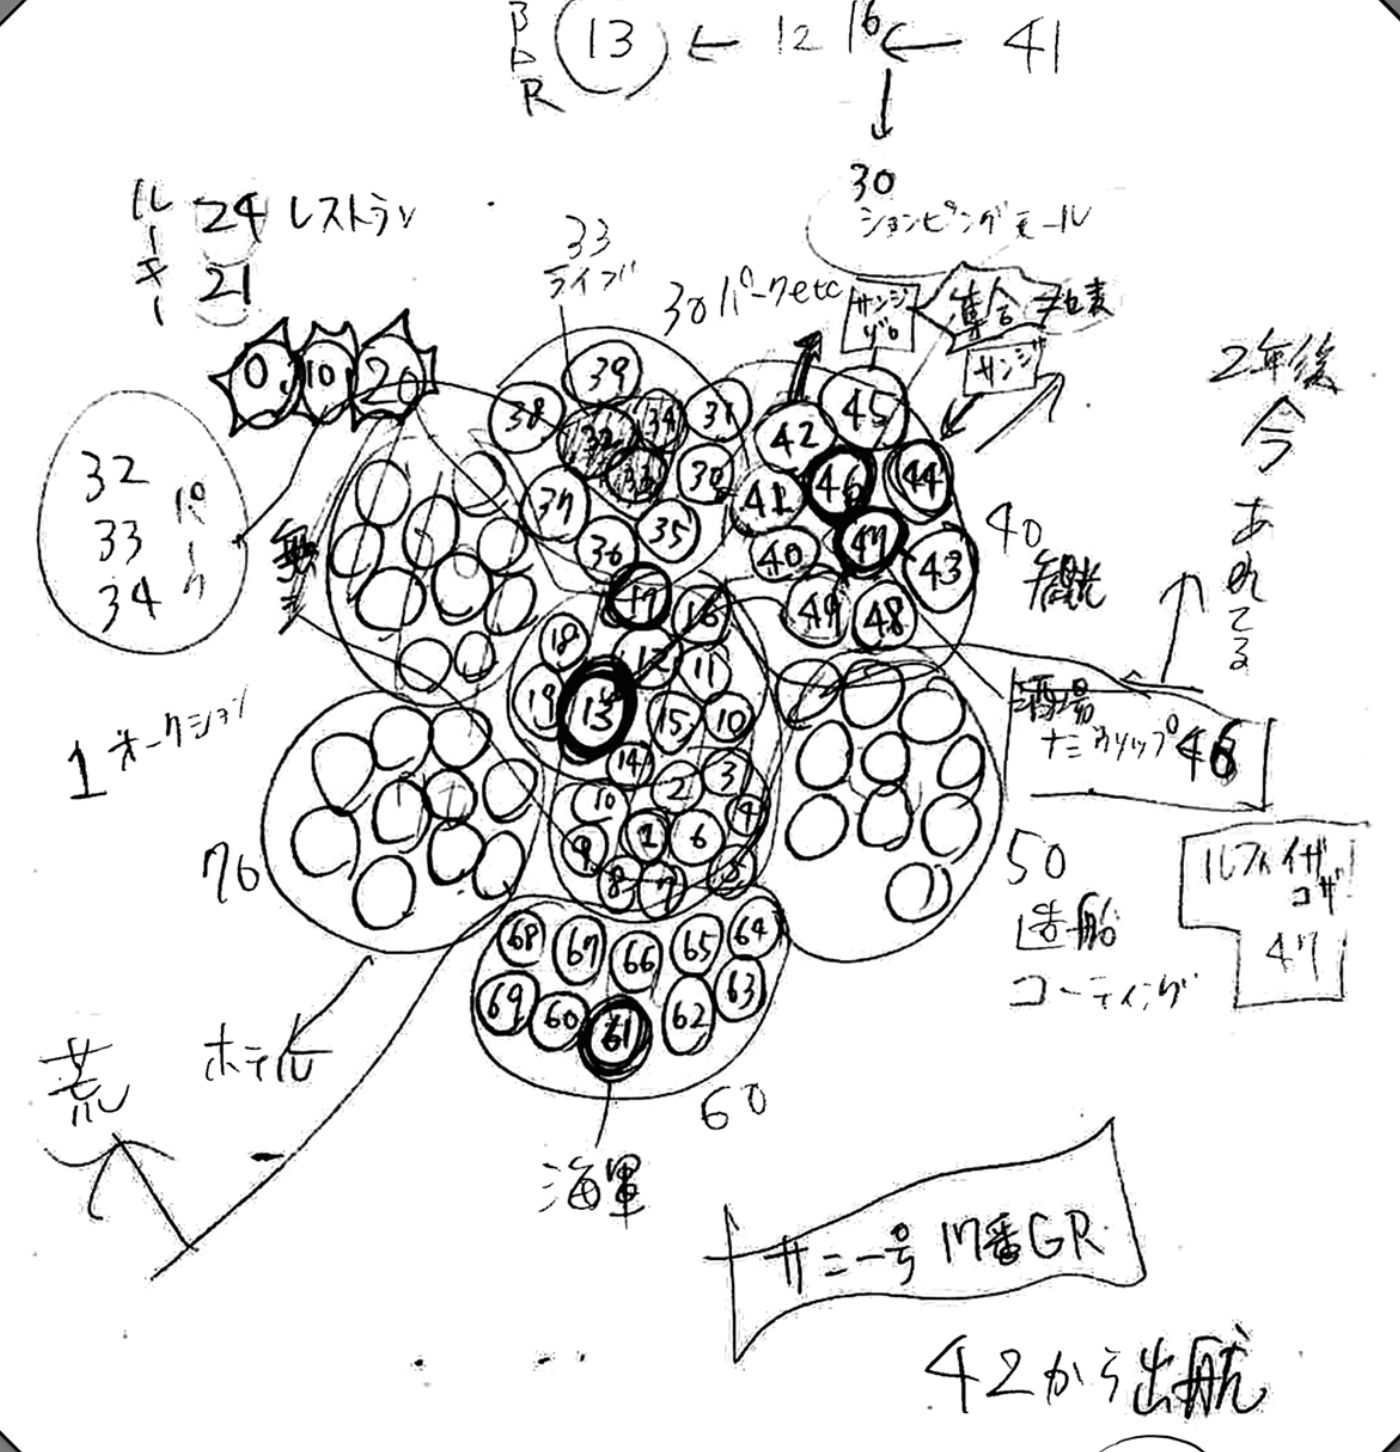 BAR 13 ← 12 16 ← 41
30
ショッピングモール
ルーキー
24 レストラン
21
33
ライブ
30パークetc
サンジ
ゾロ
集合
サンジ
2年後
今
あれてる
0 10 20
32
33
34
パーク
無法
39
38 32 34 31
37 33 30
36 35
45
42 46 44
41 47
40 43
49 48
40
観光
17 16
18 12 11
19 13 15 10
14
2 3
10 4
1 6
9 8 7 5
酒場
ナミウソップ 46
1 オークション
70
50
造船
コーティング
ルフィイザコザ
47
68 67 66 65 64
69 60 61 62 63
60
ホテル
荒
海軍
サニー号 17番GR
42から出航